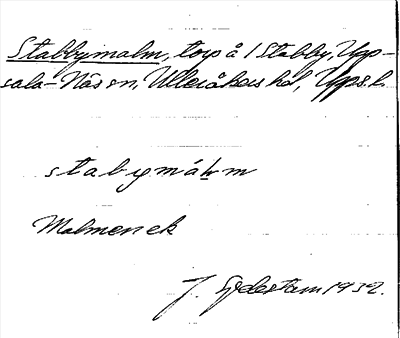 Stabbymalm, torp å 1 Stabby, Upp-
sala-Näs sn, Ulleråkers hd, Upps. l.
stabymálm
Malmen ek
J. Sydestam 1932.